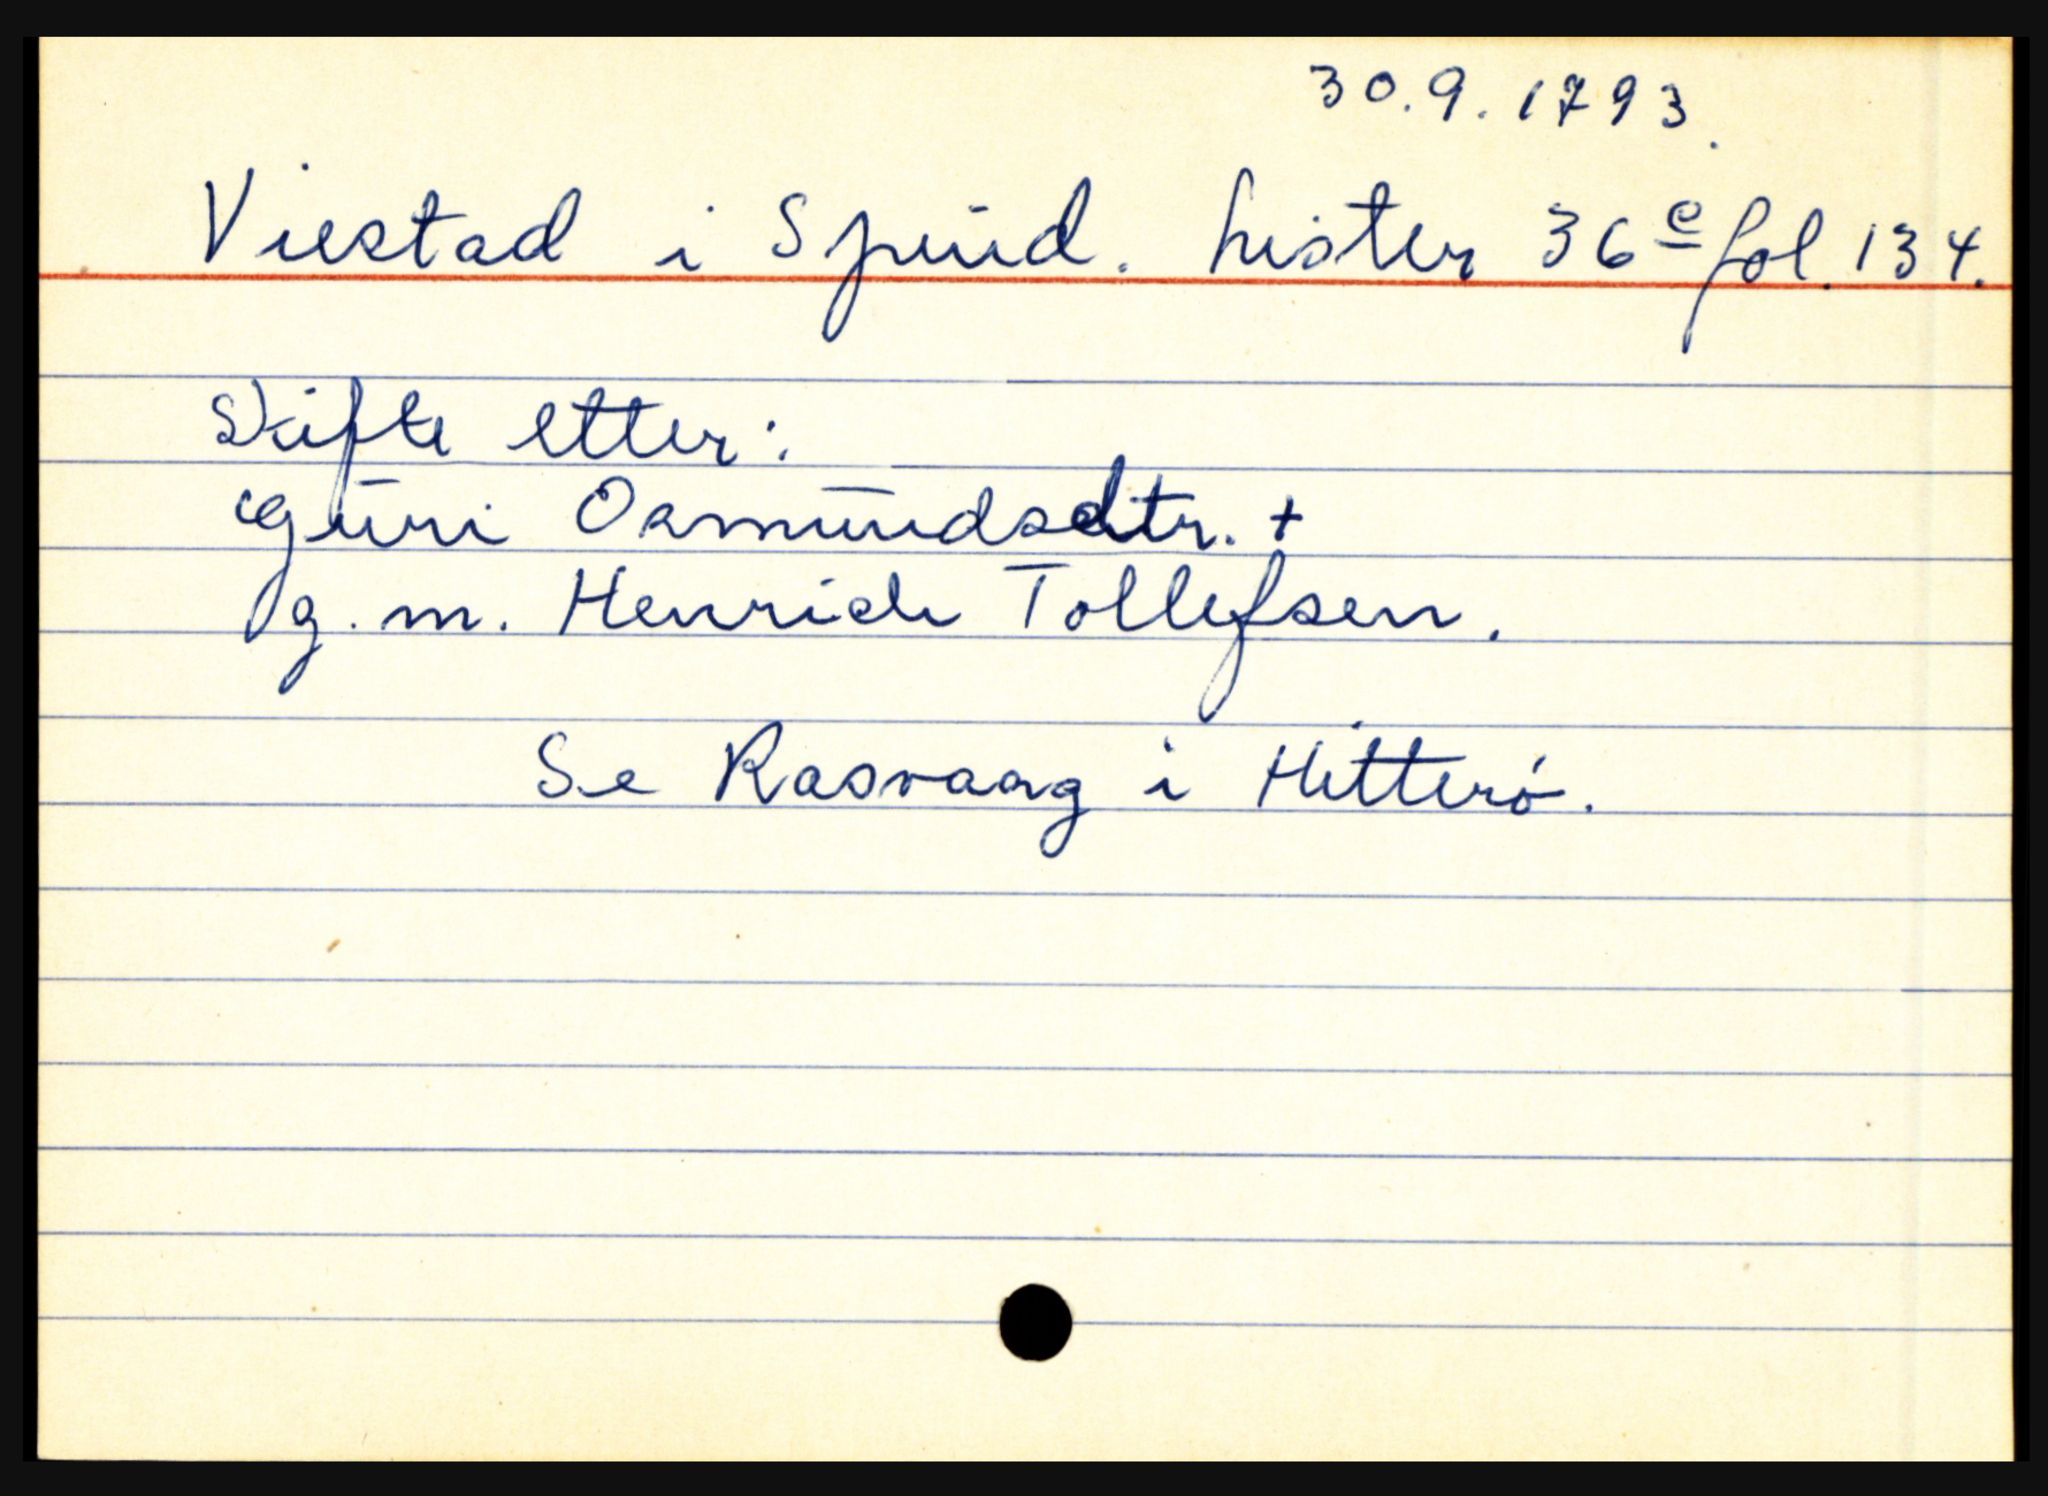 30.9.1793.
Viestad i Spind. Lister 36 e fol. 134.
Skifte etter:
Guri Osmundsdtr. +
g. m. Henrich Tollefsen.
Se Rasvaag i Hitterö.